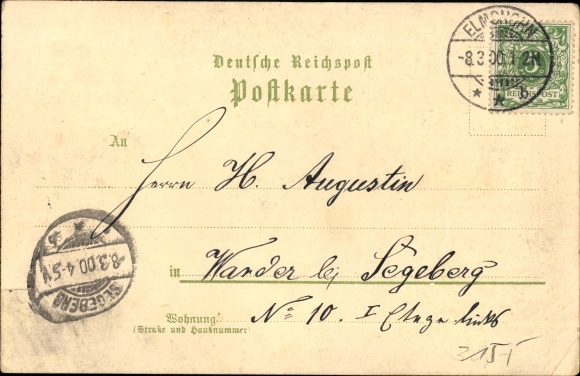 Deutsche Reichspost
Postkarte
ELMSHORN
-8.3.00.1-2N
* * b.
5
REICHSPOST
An
Herrn H. Augustin
in Wander bei Segeberg
Wohnung
(Straße und Hausnummer)
No 10. I Etage links
SEGEBERG
8.3.00.4-5N